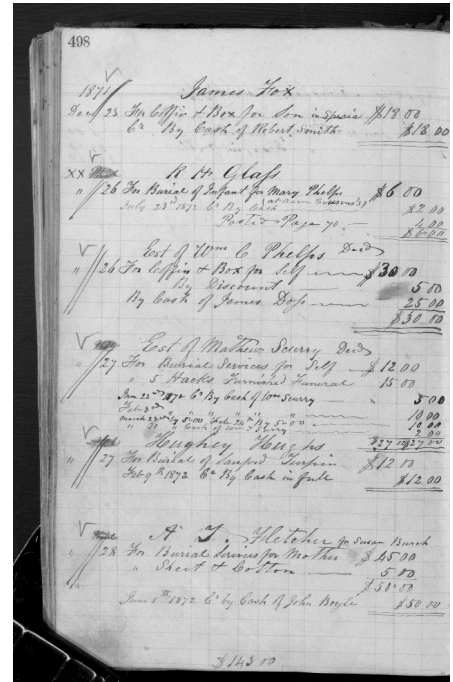 498
1871 James Fox
Dec 23 For Coffin & Box for Son in Specie $18 00
Cr By Cash of Robert Smith $18 00
XX R H Glass
" 26 For Burial of Infant for Mary Phelps $6 00
July 23d 1872 Cr By Cash $2 00
Posted Page 70 4 00
$6 00
Est of Wm C Phelps Decd
" 26 For Coffin & Box for Self $30 00
By Discount 5 00
By Cash of James Doss 25 00
$30 00
Est of Mathew Scurry Decd
" 27 For Burial Services for Self $12 00
" 5 Hacks Furnished Funeral 15 00
Jan 22nd 1872 Cr By Cash of Wm Scurry 5 00
Feb 3rd 10 00
March 23rd By 5.00 Feb 24th By 5.00 10 00
" Cash of Wm Scurry 2 00
$27 00 $27 00
Hughey Hughs
" 27 For Burial of Sanford Turpin $12 00
Feb 9th 1872 Cr By Cash in full $12 00
A J. Fletcher for Susan Burch
" 28 For Burial Services for Mother $45 00
" Sheet & Cotton 5 00
$50 00
June 1872 Cr by Cash of John Boyle $50 00
$143 00